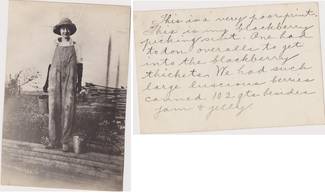 This is a very poor print.
This is my blackberry
picking suit. One had
to don overalls to get
into the blackberry
thickets. We had such
large luscious berries
canned 102 qts besides
jam & jelly